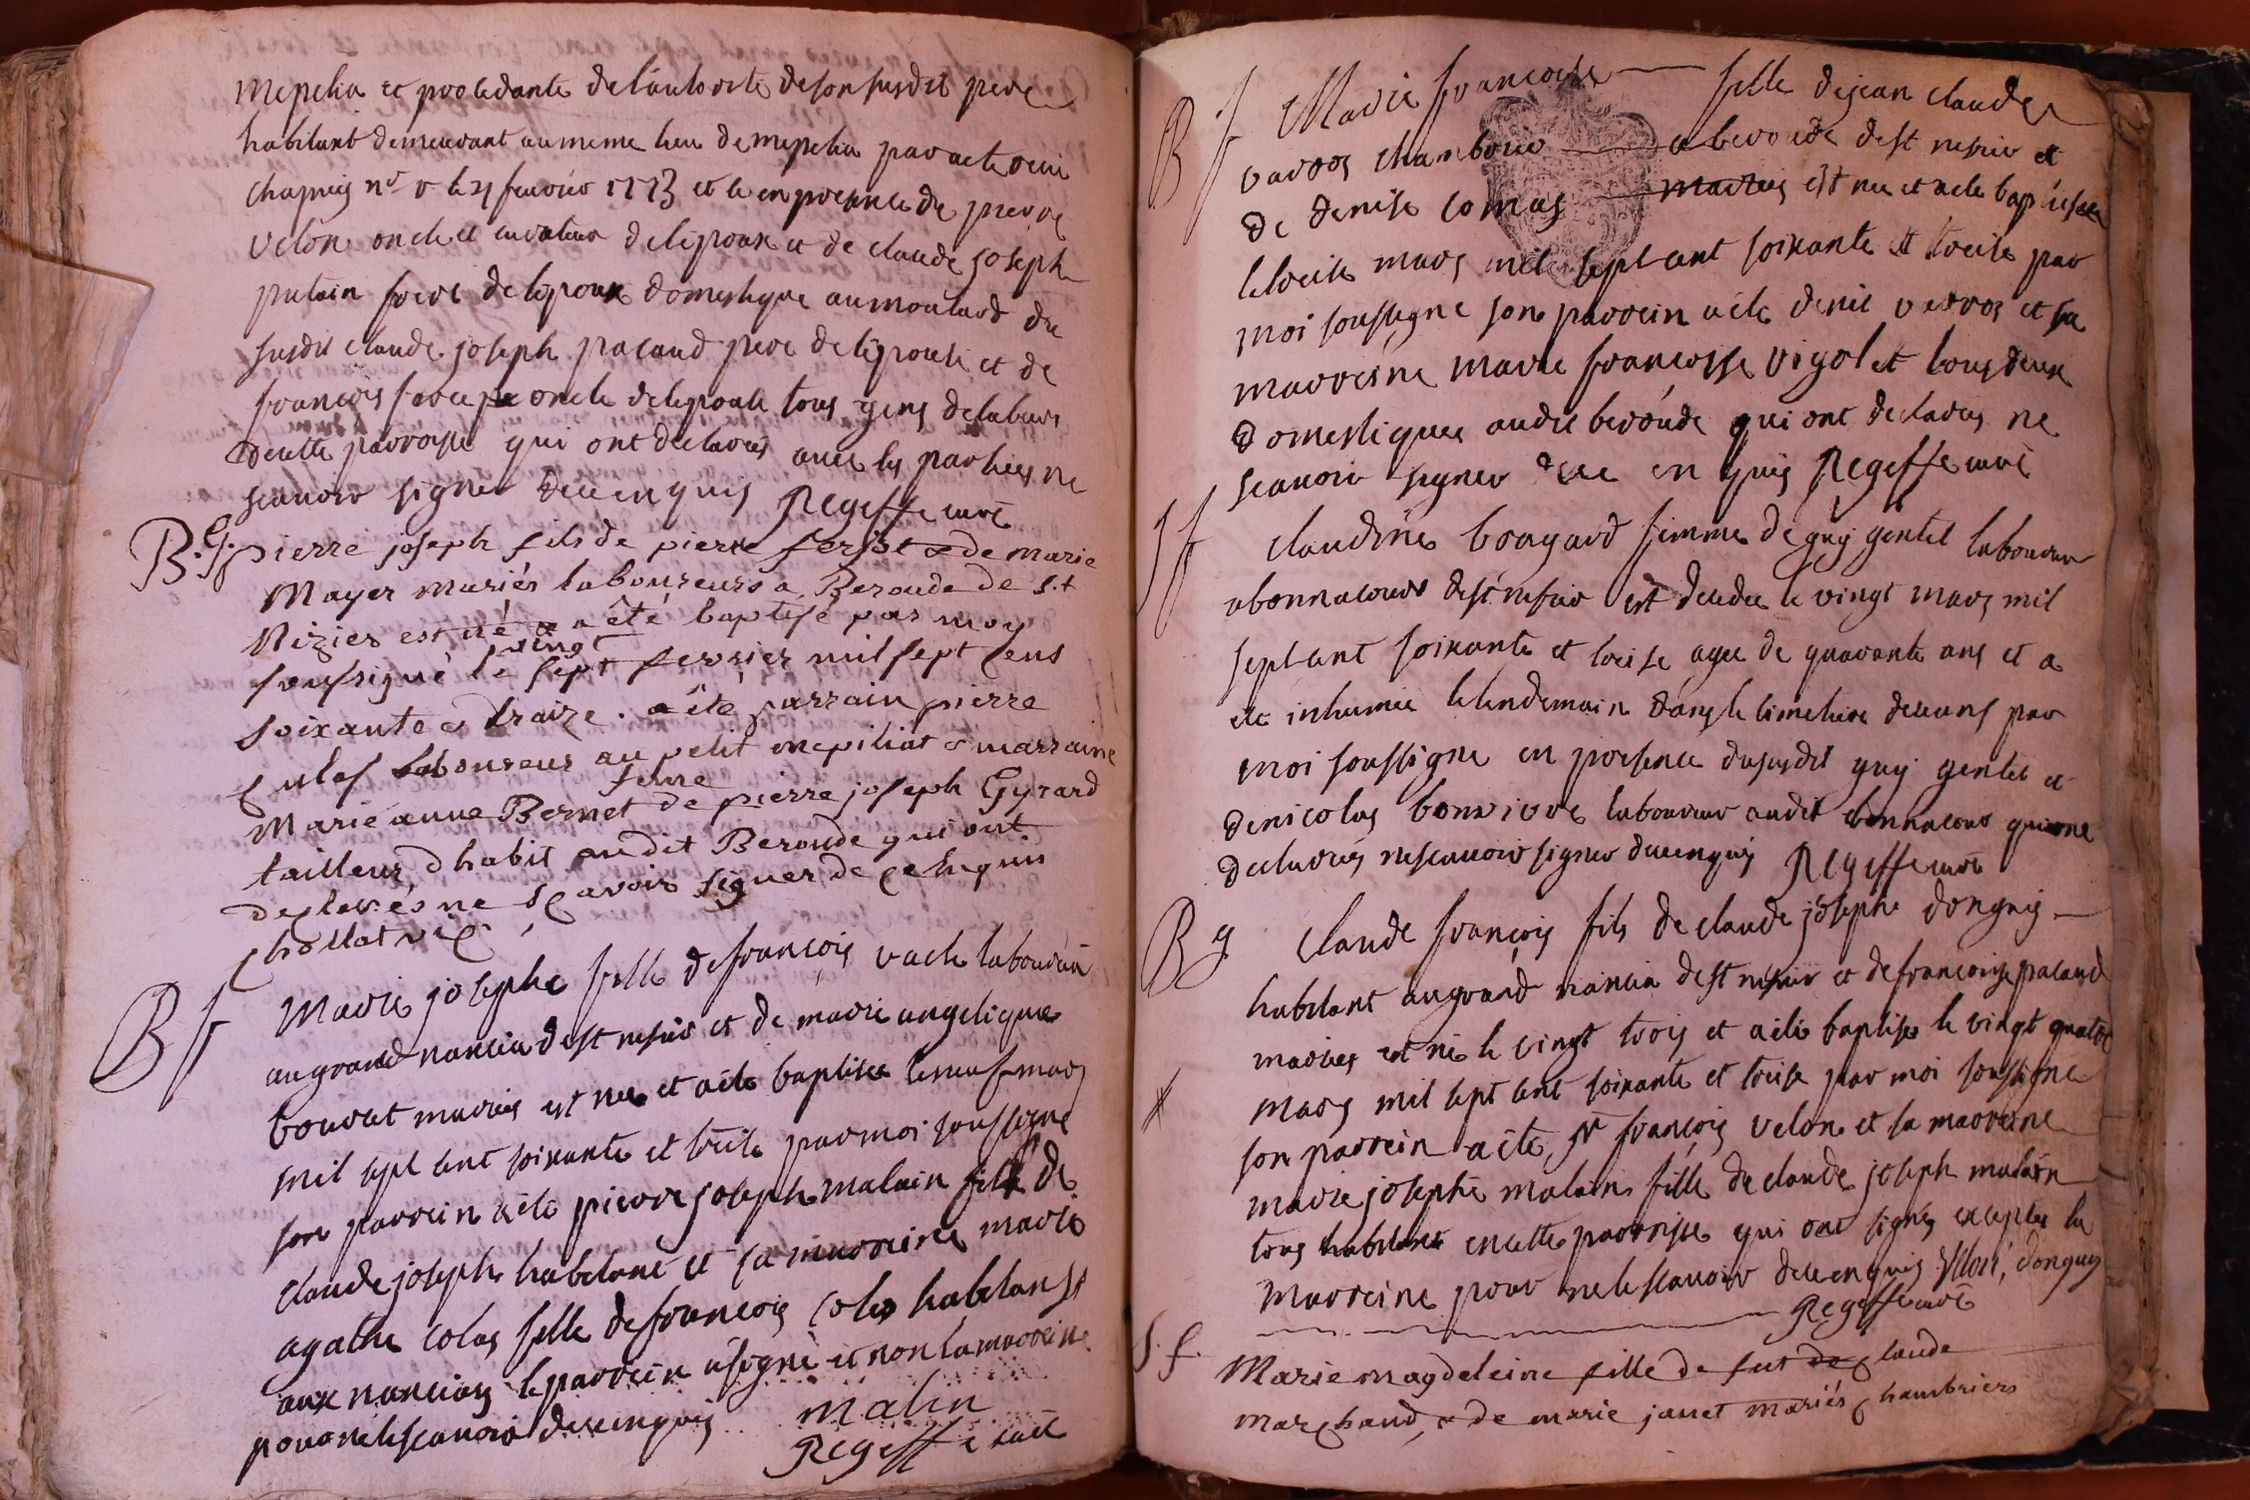 mepelia et procedante de l'autorité de son susdit pere
habitant demeurant au meme lieu de mepelia par acte reciu
chapuis nre r le 21 feuvrier 1773 et le en presence de pierre
velon oncle et curateur de l'epoux et de claude joseph
putain frere de l'epoux domestique au moulard du
susdit claude joseph pacaud pere de l'epouse et de
francois oncle de l'epouse tous gens de labeurs
de cette parroisse qui ont declarés avec les parties ne
scauoir signer de ce enquis Regeffe curé
B.g. pierre joseph fils de pierre et de marie
Mayer mariés laboureurs a Beroude de S.t
Nizier est né & a été baptisé par moy
soussigné le vingt sept fevrier mil sept cens
soixante & traize. a été parrain pierre
laboureur au petit mepiliat & marraine
Marie anne Bernet feme de pierre joseph Gyrard
tailleur d'habit audit Beroude qui ont
declarés ne sçavoir signer de ce enquis
chollat vic.
B f Marie josephe fille de francois vache laboureur
au grand nancia de st nesier et de marie angelique
bouvat mariés est née et a été baptisée le neuf mars
mil sept cent soixante et treise par moi soussigné
son parrein a été pierre joseph malain fils de
claude joseph habitant et sa marreine marie
agathe colas fille de francois colas habitants
aux nancias le parrein a signé et non la marreine
pour ne le scauoir de ce enquis malin
Regeffe curé
B f Marie francoise fille de jean claude
varros chambonier a beroude de st nesier et
de denise comas mariés est née et a été baptisée
le treise mars mil sept cent soixante et treise par
moi soussigné son parrein a été denis varros et sa
marreine marie francoise vigolet tous deux
domestiques audit beroude qui ont declarés ne
scauoir signer de ce en quis Regeffe curé
S f Claudine bouyard femme de guy gentet laboureur
a bonnacour de st nesier est decedée le vingt mars mil
sept cent soixante et treise agee de quarante ans et a
été inhumée le lendemain dans le cimetiere de ceans par
moi soussigné en presence du susdit guy gentet et
de nicolas bonnivre laboureur audit bonnacour qui ont
declarés ne scauoir signer de ce enquis Regeffe curé
B g Claude francois fils de claude joseph donguis
habitant au grand nancia de st nesier et de francoise pacaud
mariés est né le vingt trois et a été baptisé le vingt quatre
mars mil sept cent soixante et treise par moi soussigné
son parrein a été sr francois velon et sa marreine
marie josephe malain fille de claude joseph malain
tous habitants en cette parroisse qui ont signés excepté la
marreine pour ne le scauoir de ce enquis donguy
Regeffe curé
S. f. Marie magdeleine fille de fut de claude
marchand & de marie janet mariés chambriers